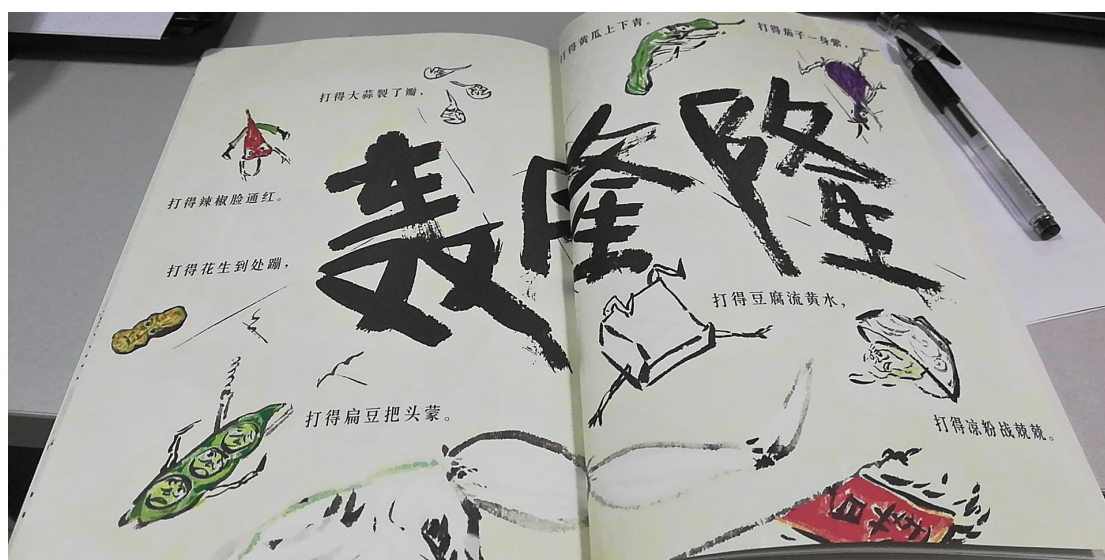 打得大蒜裂了瓣，
打得辣椒脸通红。
打得花生到处蹦，
打得扁豆把头蒙。
轰隆隆
打得黄瓜上下青。
打得茄子一身紫，
打得豆腐流黄水，
打得凉粉战兢兢。